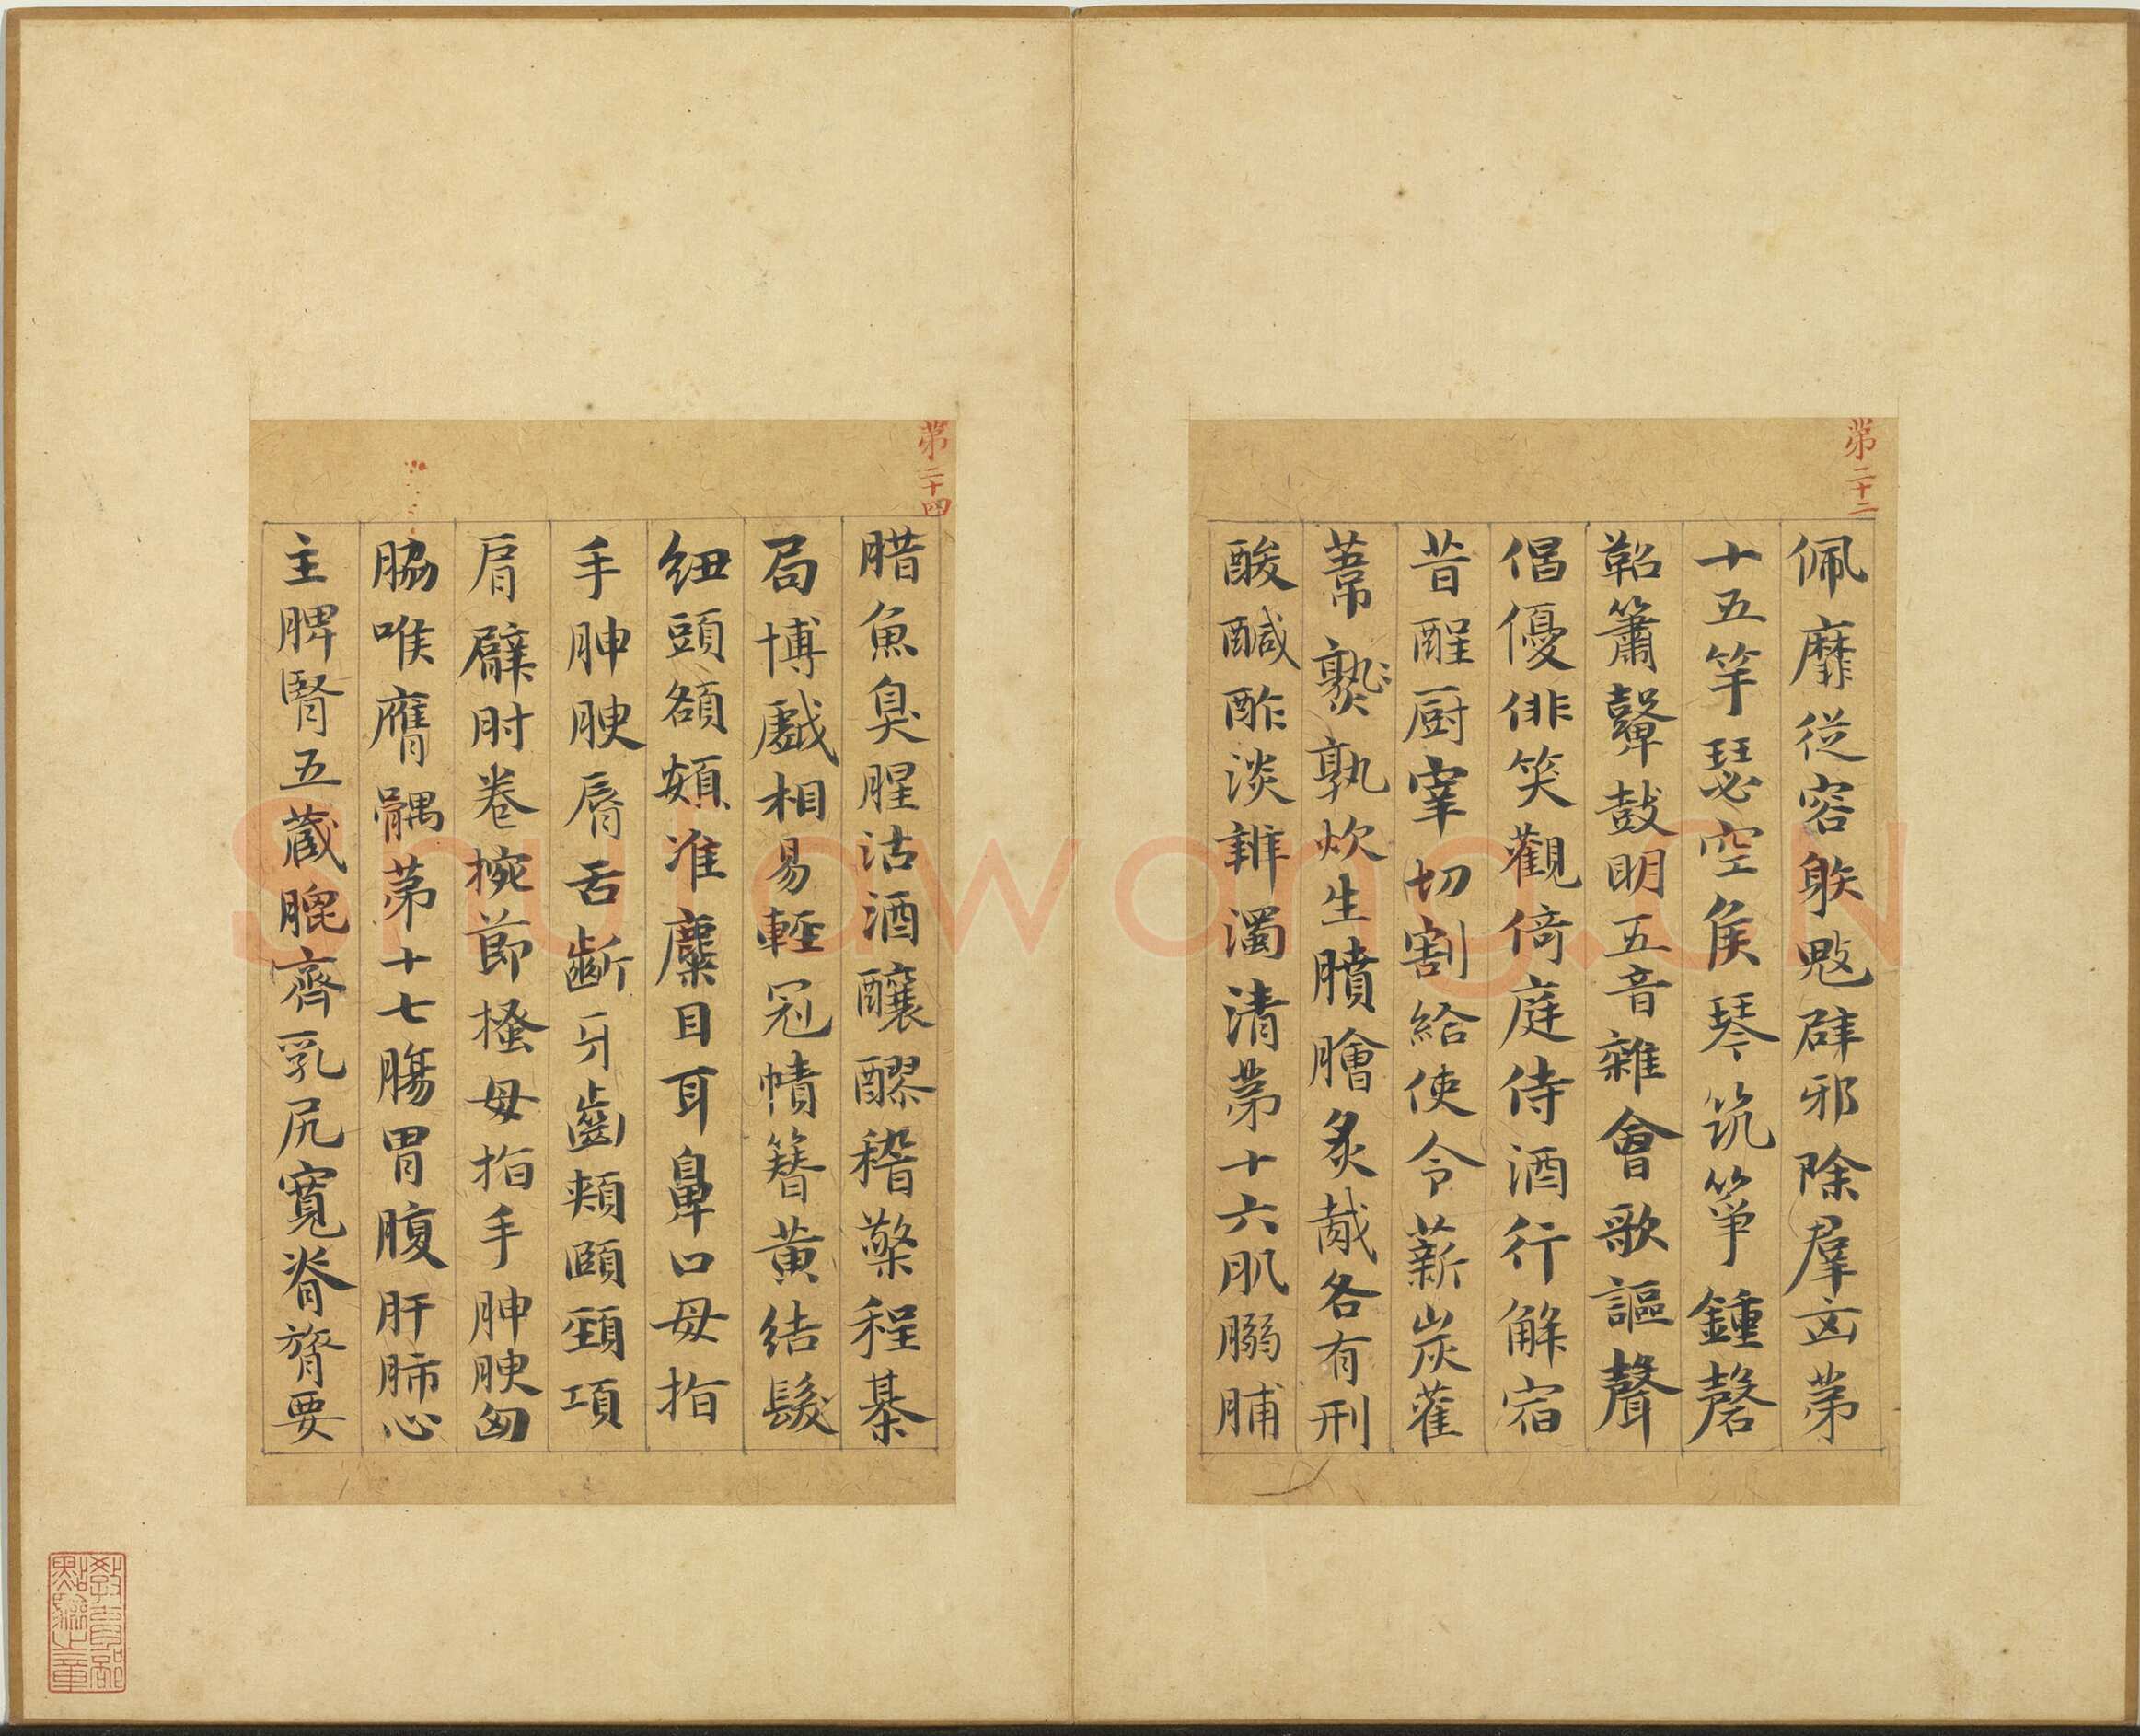 第二十二
佩靡從容射鬽辟邪除羣凶苐
十五竽瑟空侯琴筑箏鍾磬
鞀簫鼙鼓明五音雜會歌謳聲
倡優俳笑觀倚庭侍酒行解宿
昔酲厨宰切割給使令薪炭雚
葦㷅孰炊生膹膾炙胾各有刑
酸醎酢淡辨濁清苐十六肌𦞦脯
第二十四
腊魚臭腥沽酒釀醪稽檠程棊
局博戲相易輕冠幘簪黃結髮
紐頭頟頞准麋目耳鼻口毋指
手胂腴脣舌齗牙齒頰頤頸項
肩臂肘卷捥節搔母指手胂腴匈
脇喉膺髃苐十七腸胃腹肝肺心
主脾腎五藏膍齊乳尻寬脊膂要
教育部
點驗之章
Shufawang.CN